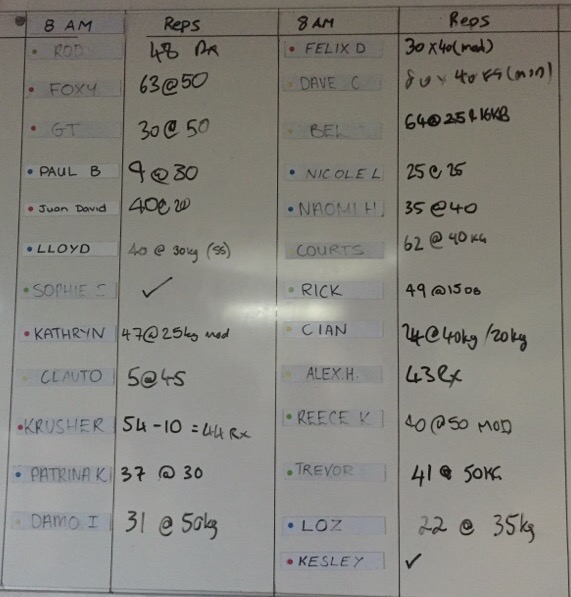 8 AM Reps 8 AM Reps
ROD 48 Rx FELIX D 30 x 40 (mod)
FOXY 63@50 DAVE C 80 x 40 KG (min)
GT 30@50 BEL 64@25 & 16KB
PAUL B 9@30 NICOLE L 25@25
Juan David 40@20 NAOMI H 35@40
LLOYD 40 @ 30kg (SS) COURTS 62 @ 40 KG
SOPHIE S ✓ RICK 49 @
KATHRYN 47@25kg mod CIAN 24@40kg/20kg
CLAUTO 5@45 ALEX.H. 43Rx
KRUSHER 54-10 = 44 Rx REECE K 40 @50 MOD
PATRINA K 37 @ 30 TREVOR 41 @ 50KG
DAMO I 31 @ 50kg LOZ 22 @ 35kg
KESLEY ✓